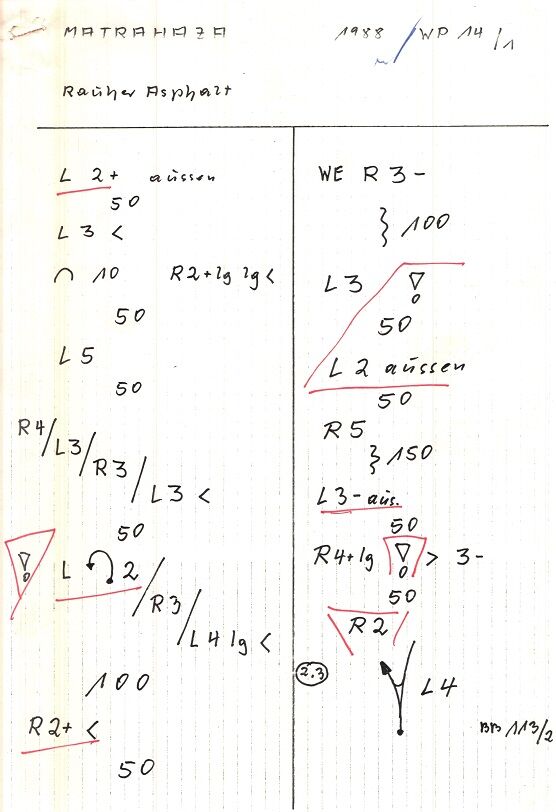 MATRAHAZA 1988 / WP 14 / 1
Rauher Asphalt
L 2+ aussen
50
L 3 <
∩ 10 R2+lg lg <
50
L 5
50
R4/L3/R3/L3 <
50
L 2/R3/L4 lg <
100
R2+ <
50
WE R 3-
} 100
L 3
50
L 2 aussen
50
R 5
} 150
L 3- aus.
50
R4+lg > 3-
50
R 2
2.3
L 4
BB 113/2